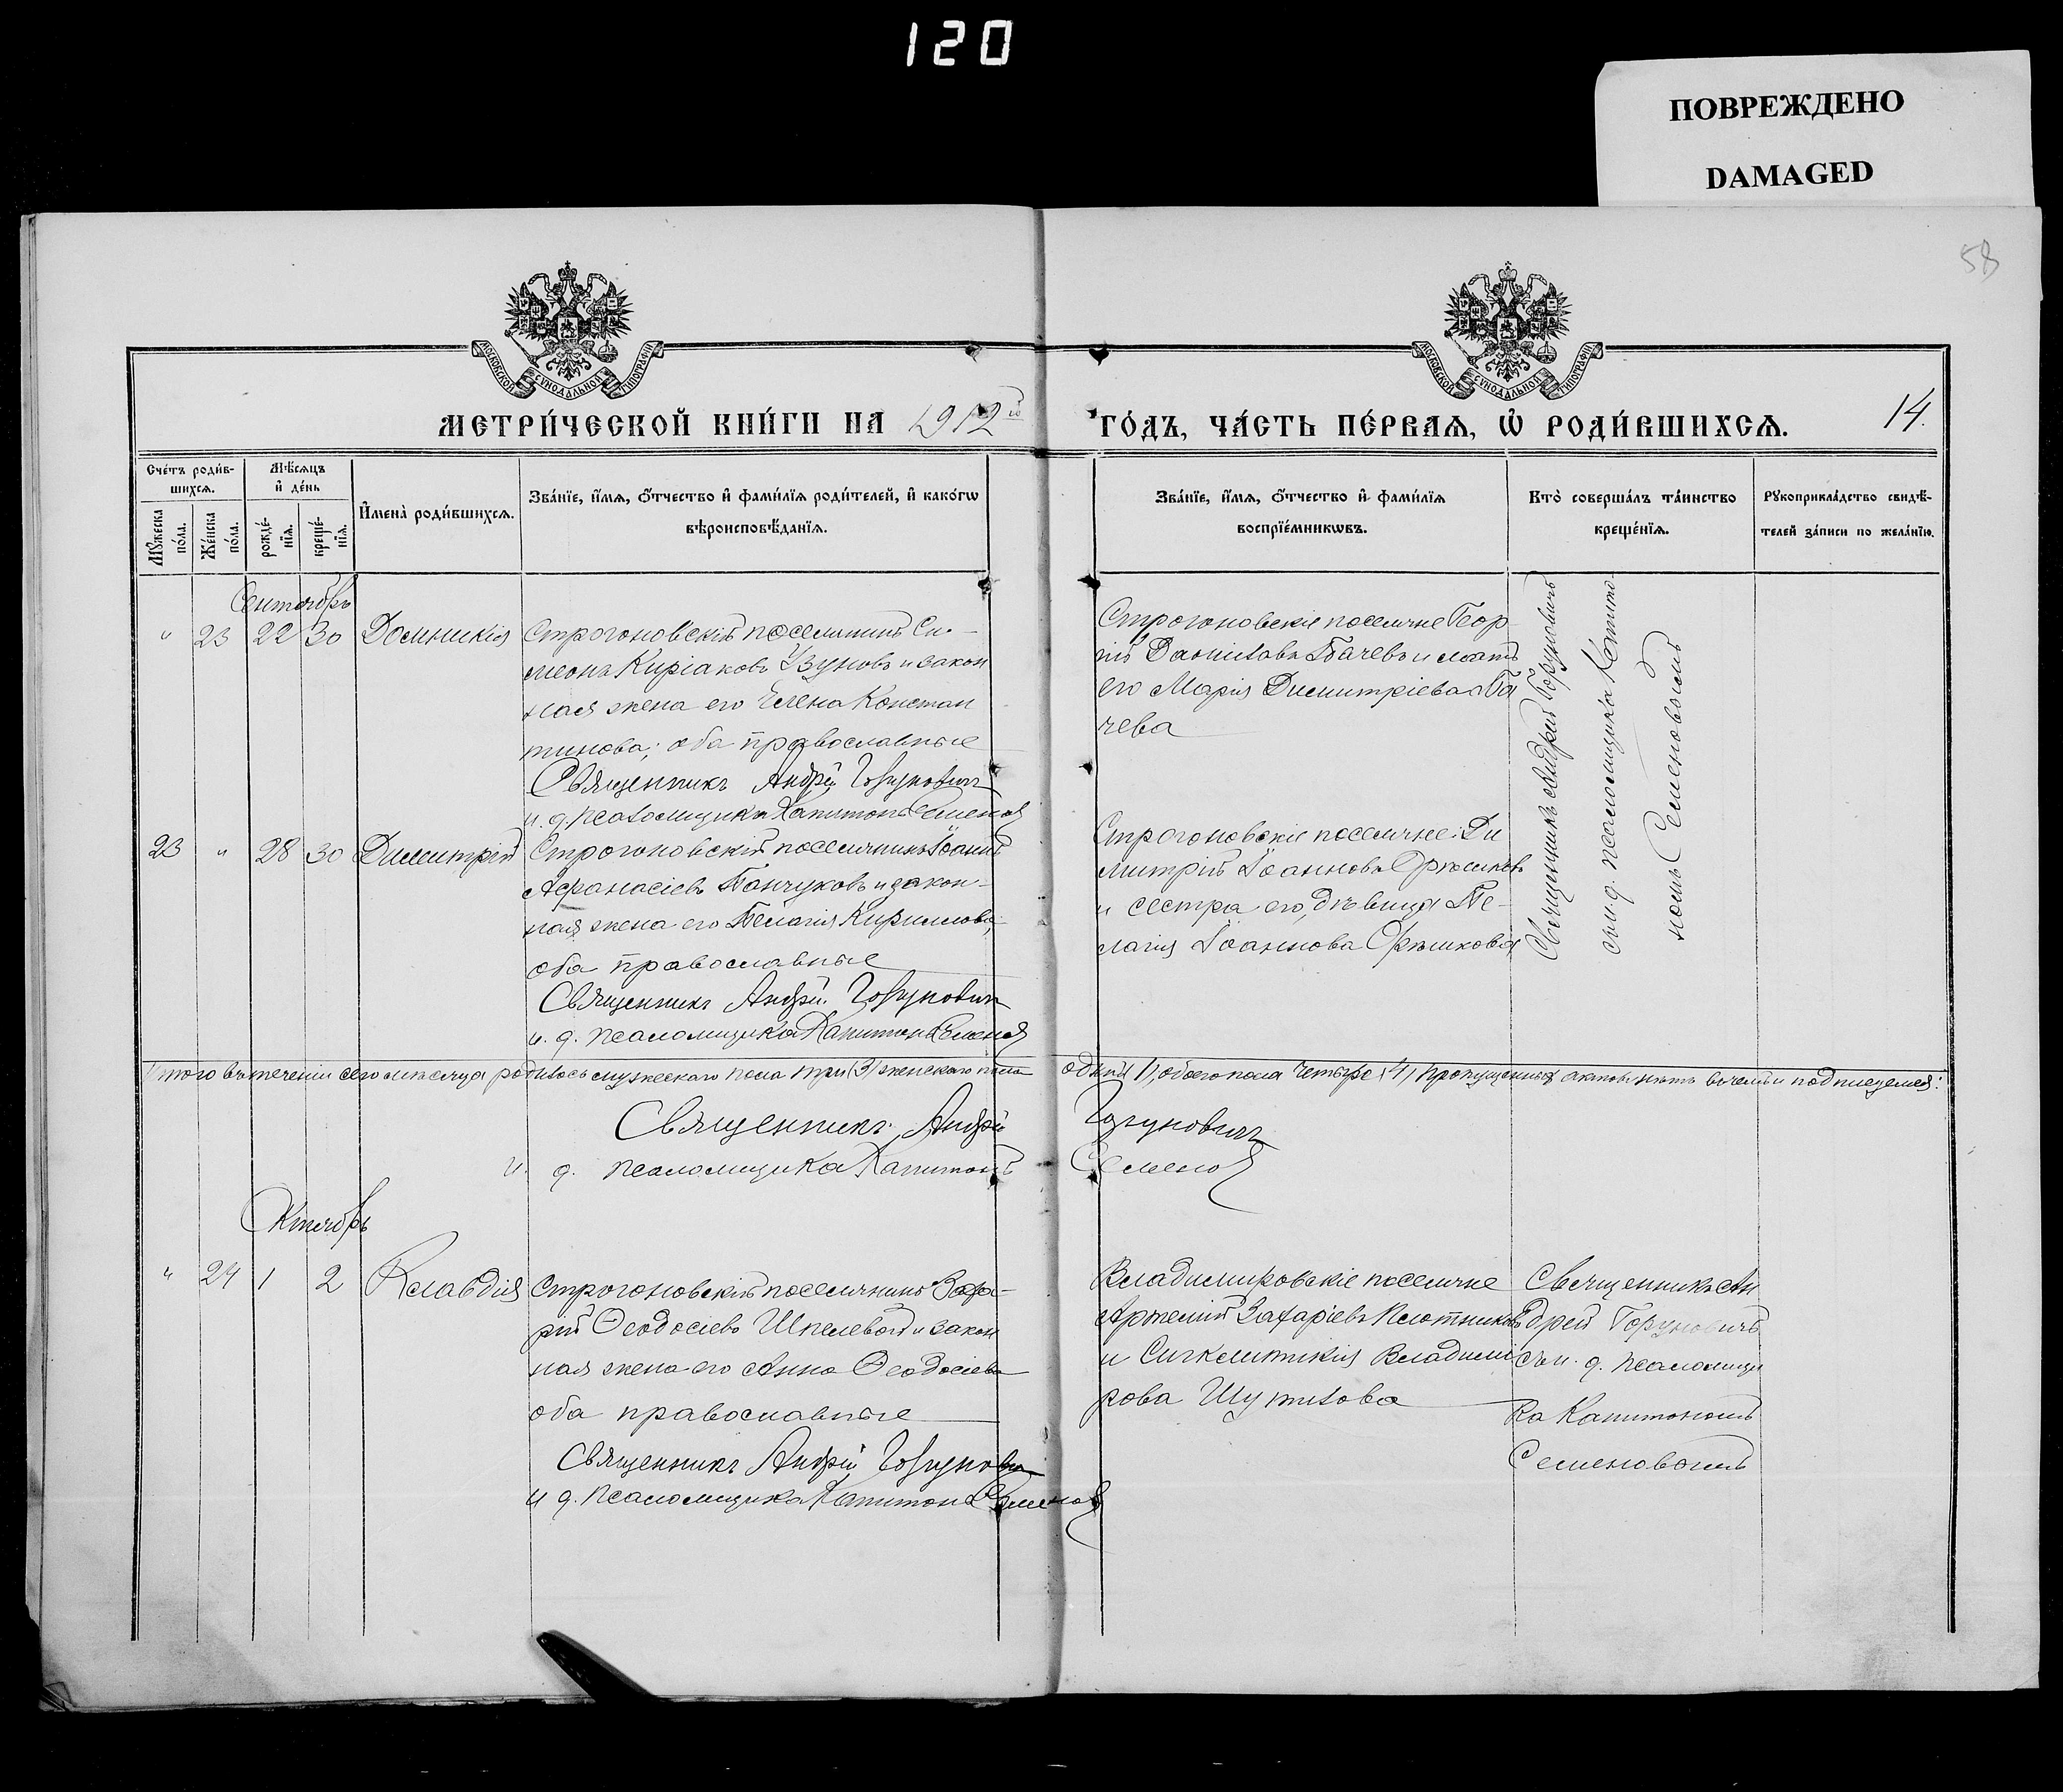 120
ПОВРЕЖДЕНО
DAMAGED
58
МОСКОВСКОЙ СѴНОДАЛЬНОЙ ТИПОГРАФІИ
МОСКОВСКОЙ СѴНОДАЛЬНОЙ ТИПОГРАФІИ
МЕТРИ́ЧЕСКОЙ КНИ́ГИ НА 1912 й
ГО́ДЪ, ЧА́СТЬ ПЕ́РВАѦ, Ѡ҆ РОДИ́ВШИХСѦ. 14.
Сче́тъ роди́в-
шихсѧ.
Мꙋ́жеска по́ла.
Же́нска по́ла.
Мѣ́сѧцъ
и҆ де́нь
рожде́-
нїѧ.
креще́-
нїѧ.
И҆мена̀ роди́вшихсѧ.
Зва́нїе, и҆́мѧ, ѻ҆́тчество и҆ фами́лїѧ роди́телей, и҆ како́гѡ
вѣроисповѣ́данїѧ.
Зва́нїе, и҆́мѧ, ѻ҆́тчество и҆ фами́лїѧ
воспрїе́мникѡвъ.
Кто̀ соверша́лъ та́инство
креще́нїѧ.
Рꙋкоприкла́дство свидѣ́-
телей за́писи по жела́нїю.
Сентябрь
" 23 22 30 Домникія
Строгоновскій поселянинъ Си-
меонъ Киріаковъ Узуновъ и закон
ная жена его Елена Констан
тинова; оба православные
Священникъ Андрей Горунович
и. д. псаломщика Капитонъ Семенов
Строгоновскіе поселяне Геор
гій Даниловъ Бачевъ и мать
его Марія Димитріева Ба
чева
Священникъ Андрей Горуновичъ
съ и. д. псаломщика Капито
номъ Семеновымъ
23 " 28 30 Димитрій
Строгоновскій поселянинъ Іоаннъ
Афанасіевъ Панчуковъ и закон-
ная жена его Пелагія Кириллова;
оба православные
Священникъ Андрей Горунович
и. д. псаломщика Капитонъ Семенов
Строгоновскіе поселяне: Ди
митрій Іоанновъ Орѣшковъ
и сестра его, дѣвица Пе-
лагія Іоаннова Орѣшкова
Итого въ теченіи сего мѣсяца родилось мужескаго пола три (3) женскаго пола одна (1), обоего пола четыре (4) пропущенныхъ актовъ нѣтъ въ чемъ и подписуемся:
Священникъ Андрей Горуновичъ
и. д. псаломщика Капитонъ Семенов
Октябрь
" 24 1 2 Клавдія
Строгоновскій поселянинъ Заха-
рій Ѳеодосіевъ Шпелевой и закон
ная жена его Анна Ѳеодосіева
оба православные
Священникъ Андрей Горунович
и д. псаломщика Капитонъ Семенов
Владимировскіе поселяне
Артемій Захаріевъ Плотниковъ
и Сигклитикія Владими
рова Шутова
Священникъ Ан
дрей Горуновичъ
съ и. д. псаломщи
ка Капитономъ
Семеновымъ